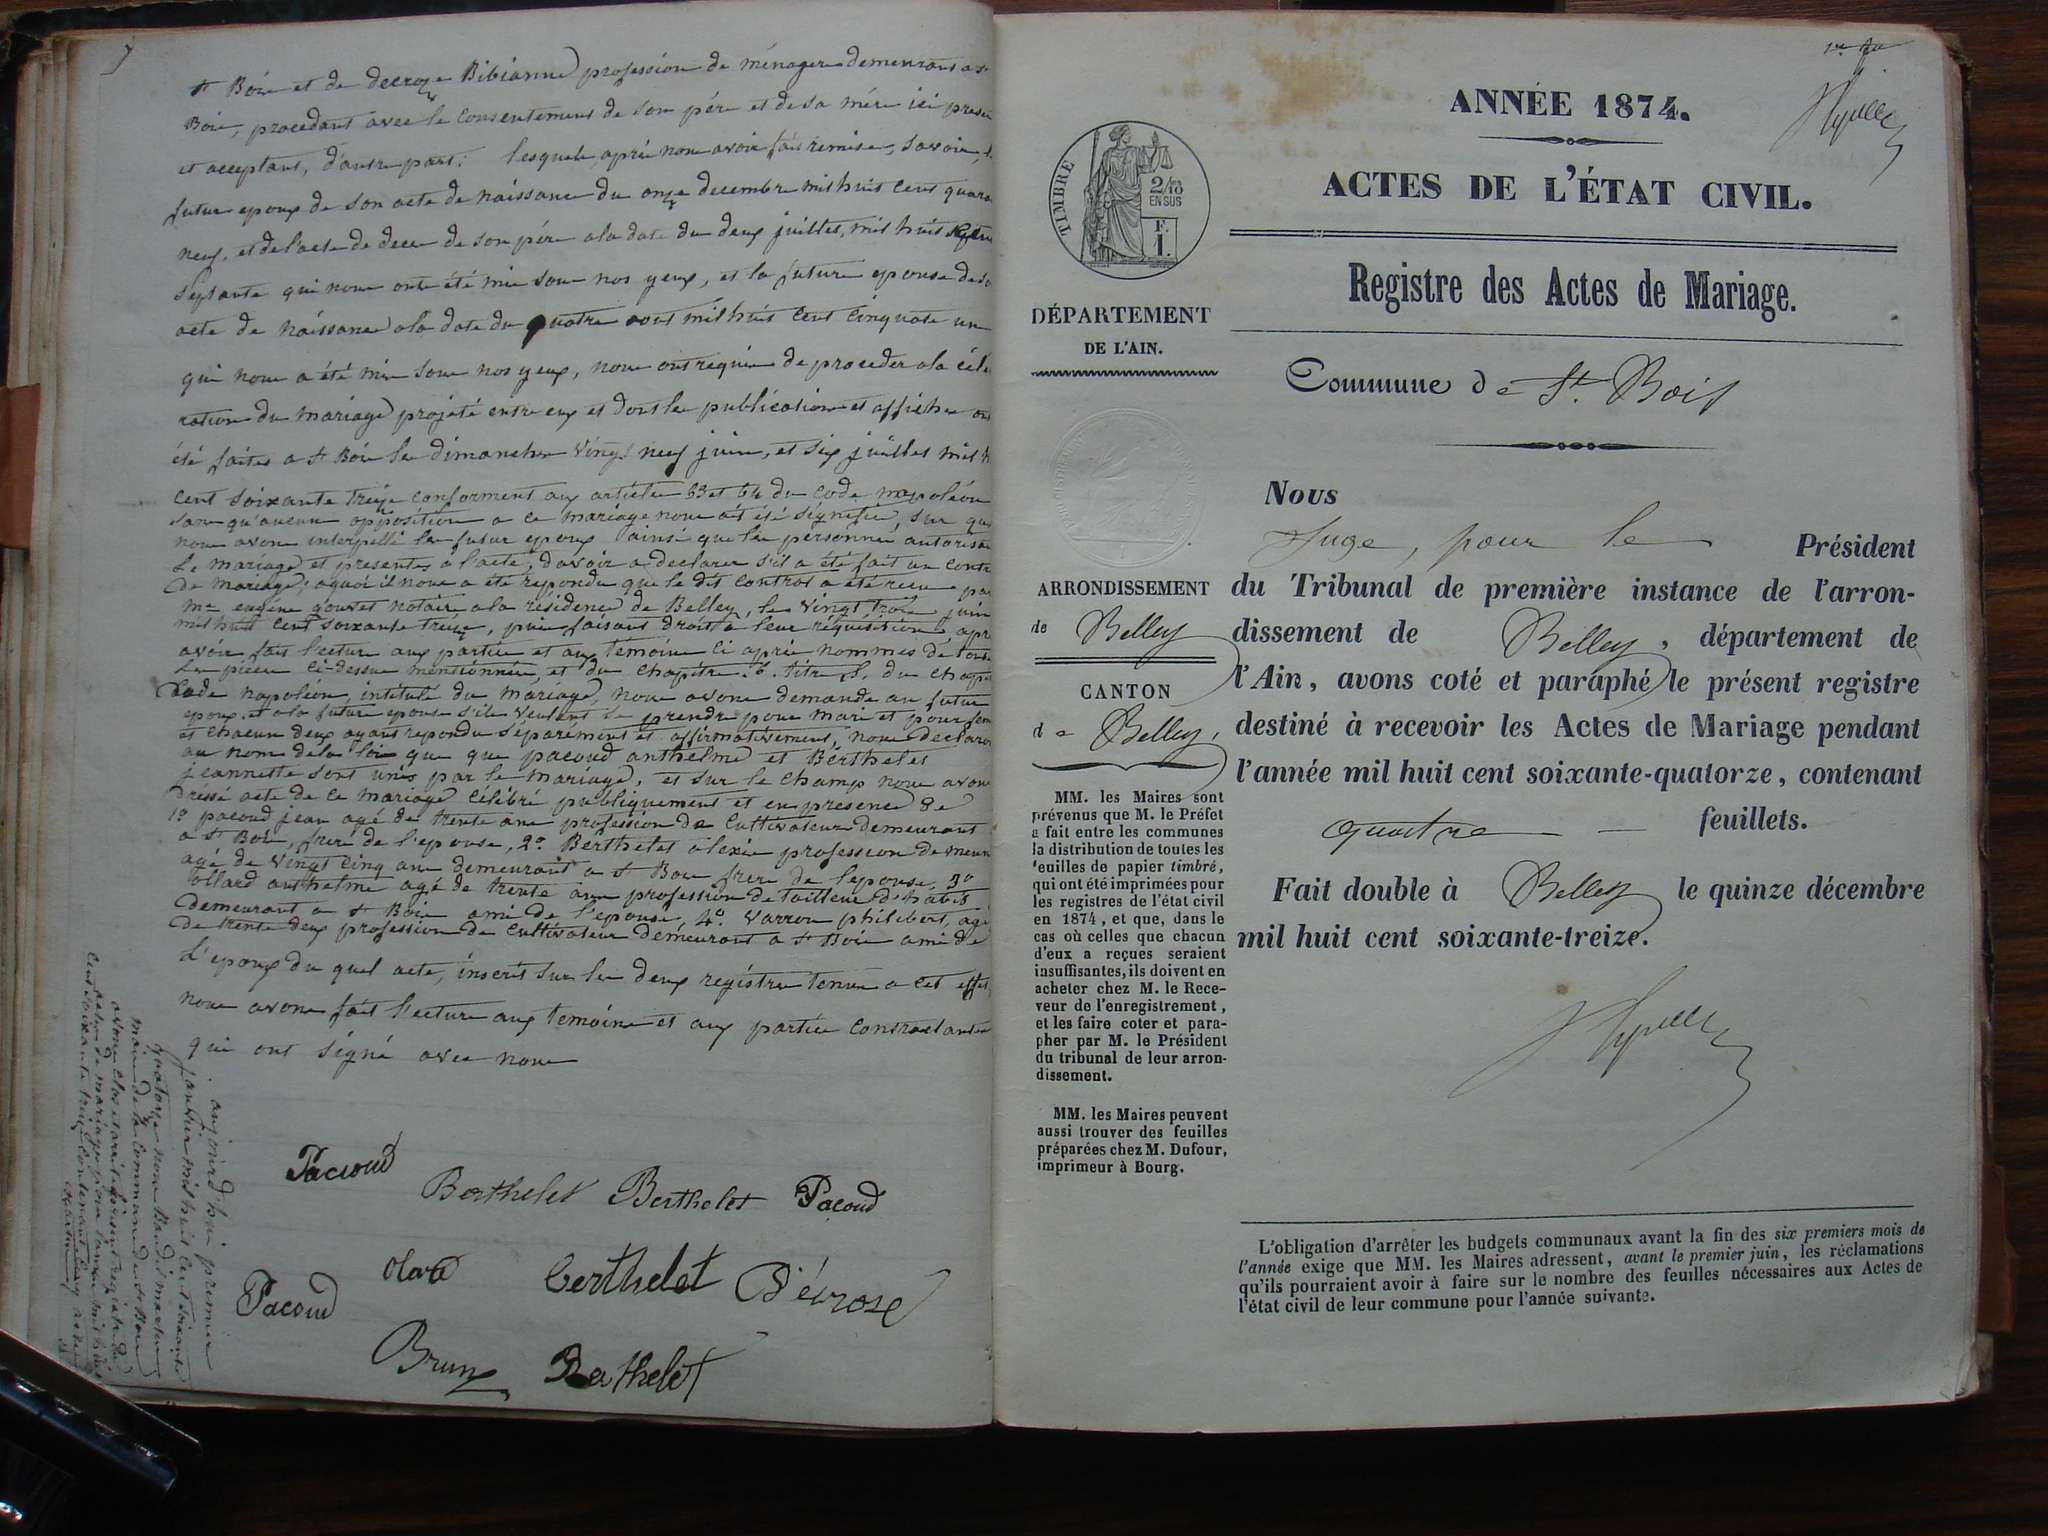 St Bois et de decroze Bibianne profession de ménagere demeurant a St
Bois, procedant avec le consentement de son pére et de sa mére ici presen
et acceptant, d'autre part: lesquels aprés nous avoir fait remise, savoir, le
futur epoux de son acte de naissance du onze decembre mil huit cent quara
neuf, et de l'acte de deces de son pére a la date du deux juillet, mil huit
septante qui nous ont été mis sous nos yeux, et la future epouse de so
acte de naissance a la date du quatre aout mil huit cent cinquate un
qui nous a été mis sous nos yeux, nous ont requis de proceder a la célé
ration du mariage projeté entre eux et dont les publications et affiches ont
été faites a St Bois les dimanches vingt neuf juin, et six juillet mil h
cent soixante treize conforment aux articles 63 et 64 du code napoléon
sans qu'aucune opposition a ce mariage nous ait été signifié, sur quoi
nous avons interpellé les futur epoux ainsi que les personnes autorisa
le mariage et presentes a l'acte, d'avoir a declarer s'il a été fait un contr
de mariage, a quoi il nous a été repondu que le dit contrat a été recu par
Me eugéne gouvet notaire a la résidence de Belley, le vingt trois juin
mil huit cent soixante treize, puis faisant droit a leur réquisition apre
avoir fait lecture aux parties et aux témoins ci aprés nommés de toute
les pieces ci-dessus mentionnées, et du chapitre 6. titre 5. du chapit
Code napoléon, intitulé du mariage, nous avons demandé au futur
epoux et a la future epouse s'ils veulent se prendre pour mari et pour fem
et chacun deux ayant repondu séparément et affirmativement, nous declaron
au nom de la loi que que pacoud anthelme et Berthelet
jeannette sont unis par le mariage, et sur le champ nous avons
dréssé acte de ce mariage célébré publiquement et en presence de
1o pacoud jean agé de trente ans profession de cultivateur demeurant
a St Bois, frere de l'epouse, 2o Berthelet alexis profession de meun
agé de vingt cinq ans demeurant a St Bois frere de l'epouse, 3o
ollard anthelme agé de trente ans profession de tailleur d'habits
demeurant a St Bois ami de l'epouse, 4o varron philibert, agé
de trente deux profession de cultivateur demeurant a St Bois ami de
l'epoux du quel acte, inscrit sur les deux registres tenus a cet effet,
nous avons fait lecture aux temoins et aux parties contractantes
qui ont signé avec nous
Pacoud
Berthelet Berthelet Pacoud
olard Berthelet Décroze
Pacoud
Brun Berthelet
aujourd'hui premier
janvier mil huit cent soixante
quatorze nous
maire de la commune de St Bois
avons clos et arrêté le présent registre des
actes de mariage pour l'année mil huit
cent soixante treize contenant cinq
ANNÉE 1874.
ACTES DE L'ÉTAT CIVIL.
Registre des Actes de Mariage.
TIMBRE
2/10
EN SUS
F.
1.
DÉPARTEMENT
DE L'AIN.
Commune de St. Bois
ARRONDISSEMENT
de Belley
CANTON
de Belley,
MM. les Maires sont
prévenus que M. le Préfet
a fait entre les communes
la distribution de toutes les
feuilles de papier timbré,
qui ont été imprimées pour
les registres de l'état civil
en 1874, et que, dans le
cas où celles que chacun
d'eux a reçues seraient
insuffisantes, ils doivent en
acheter chez M. le Rece-
veur de l'enregistrement,
et les faire coter et para-
pher par M. le Président
du tribunal de leur arron-
dissement.
MM. les Maires peuvent
aussi trouver des feuilles
préparées chez M. Dufour,
imprimeur à Bourg.
NOUS
Juge, pour le Président
du Tribunal de première instance de l'arron-
dissement de Belley, département de
l'Ain, avons coté et paraphé le présent registre
destiné à recevoir les Actes de Mariage pendant
l'année mil huit cent soixante-quatorze, contenant
quatre feuillets.
Fait double à Belley le quinze décembre
mil huit cent soixante-treize.
L'obligation d'arrêter les budgets communaux avant la fin des six premiers mois de
l'année exige que MM. les Maires adressent, avant le premier juin, les réclamations
qu'ils pourraient avoir à faire sur le nombre des feuilles nécessaires aux Actes de
l'état civil de leur commune pour l'année suivante.